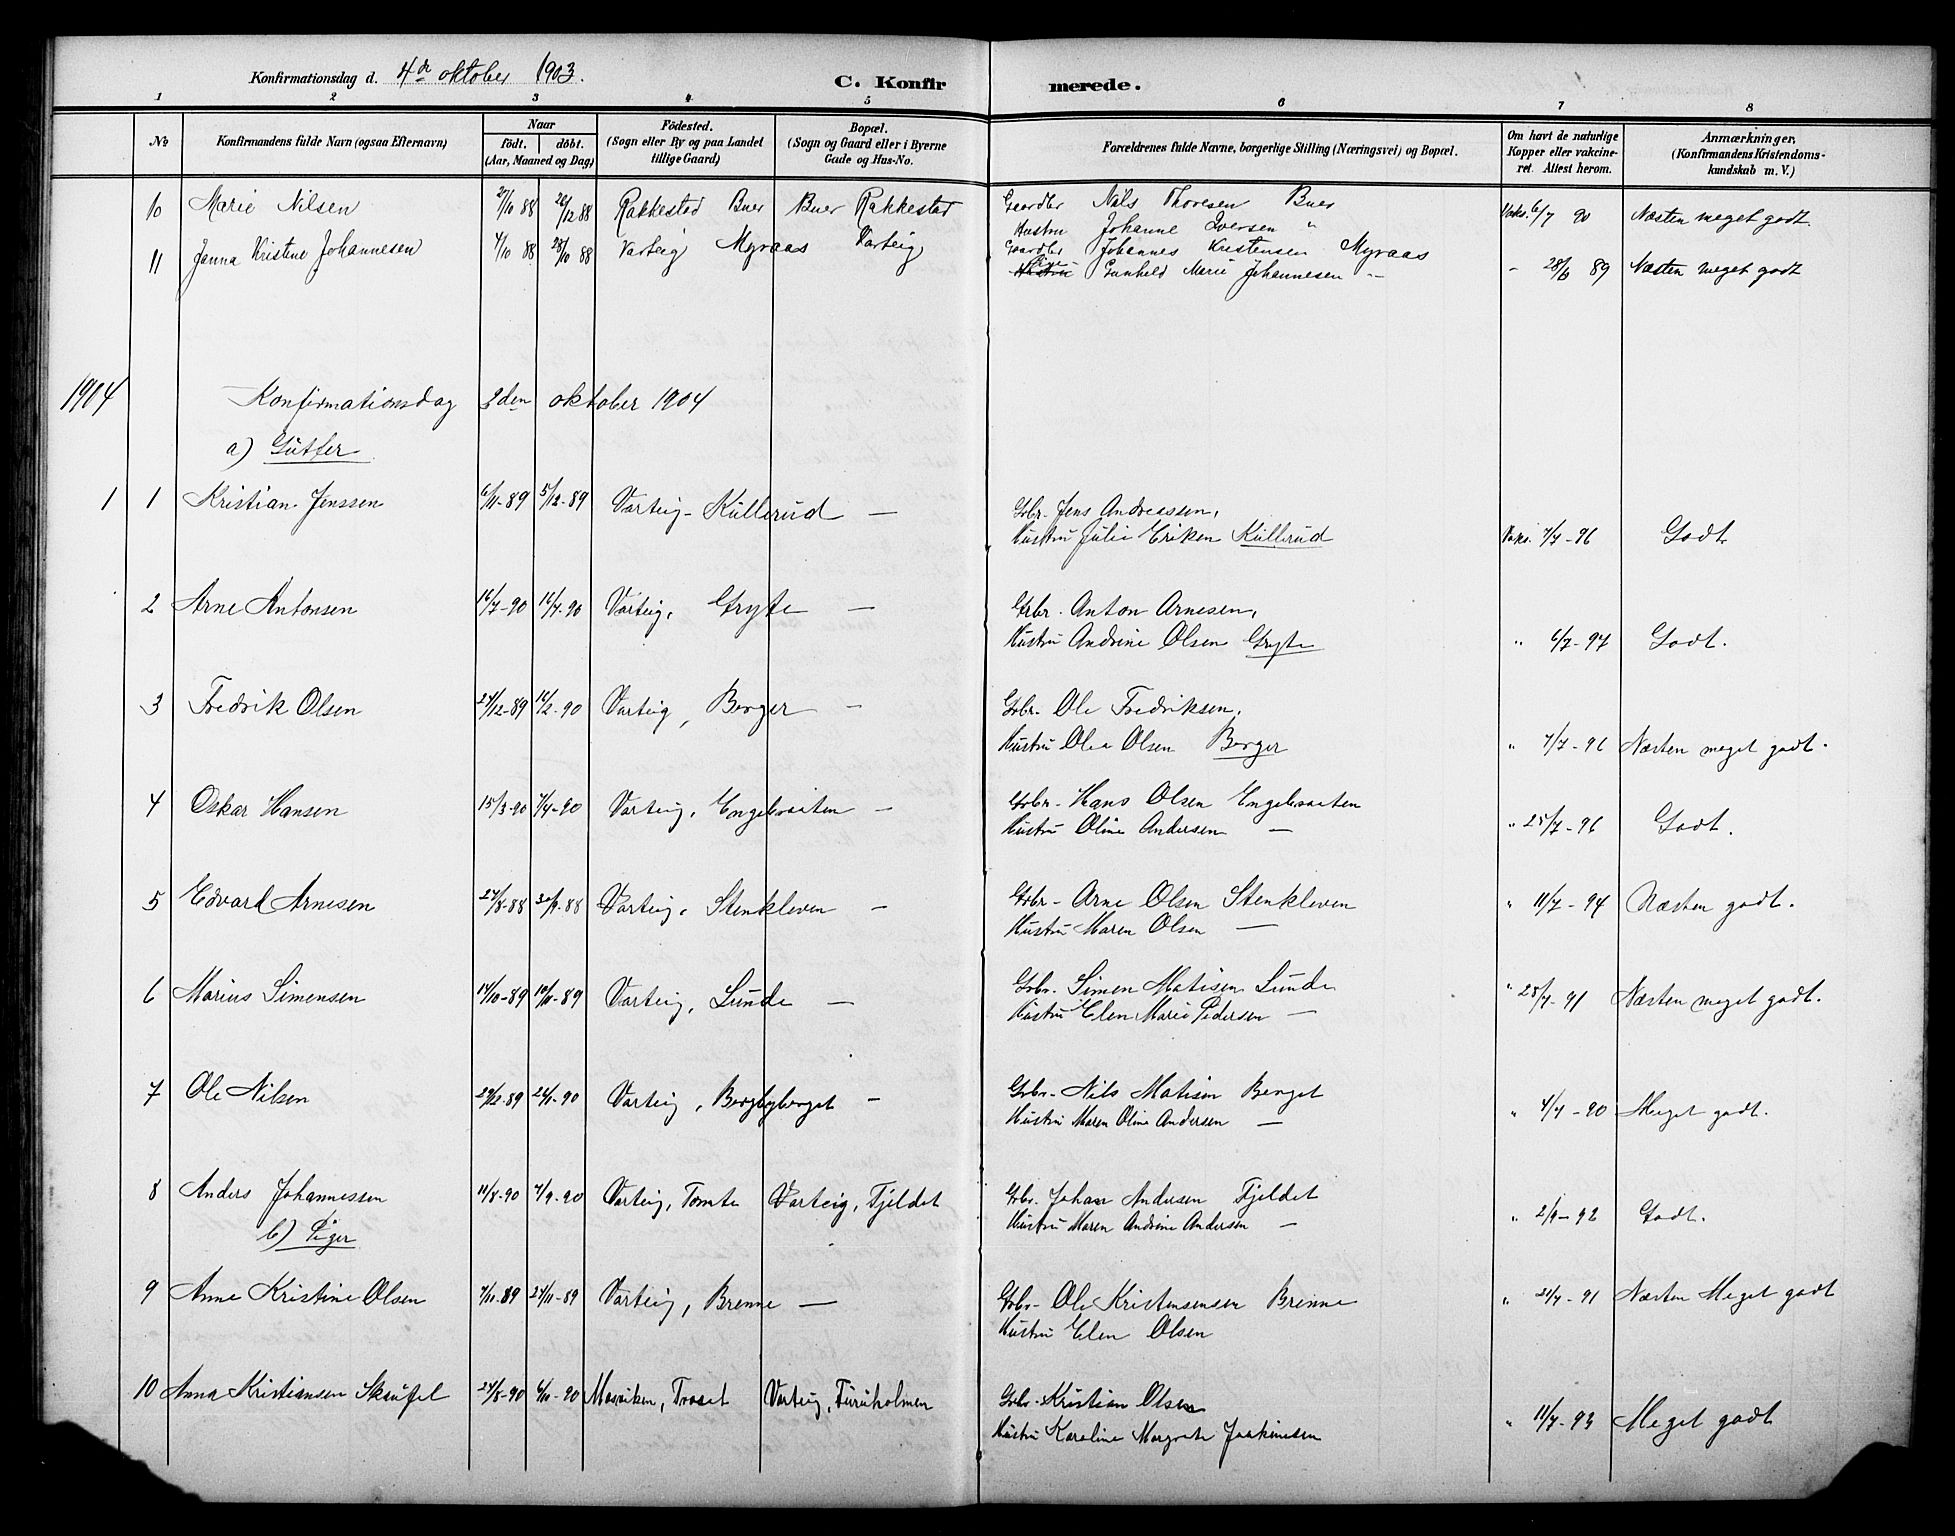 Konfirmationsdag d. 4de oktober 1903.
C. Konfirmerede.
1 2 3 4 5 6 7 8
No
Konfirmandens fulde Navn (ogsaa Efternavn)
Naar
födt. döbt.
(Aar, Maaned og Dag)
Födested.
(Sogn eller By og paa Landet
tillige Gaard)
Bopæl.
(Sogn og Gaard eller i Byerne
Gade og Hus-No.
Forældrenes fulde Navne, borgerlige Stilling (Næringsvei) og Bopæl.
Om havt de naturlige
Kopper eller vakcine-
ret. Attest herom.
Anmærkninger,
(Konfirmandens Kristendoms-
kundskab m. V.)
10 Marie Nilsen 27/10 88 26/12 88 Rakkestad Buer Buer Rakkestad Gaardbr Nils Thoresen Buer Vaks. 6/7 90 Næsten meget godt.
Hustru Johanne Iversen "
11 Janna Kristine Johannesen 4/10 88 28/10 88 Varteig Myraas Varteig Gaardbr Johannes Kristensen Myraas
Pige Hustru Gunhild Marie Johannesen - - 28/6 89 Næsten meget godt
1904 Konfirmationsdag 2den oktober 1904
a) Gutter
1 1 Kristian Jenssen 6/11-89 5/12-89 Varteig - Kullerud — Grbr. Jens Andreassen,
Hustru Julie Eriksen Kullerud Vaks. 7/7-96 Godt
2 Arne Antonsen 16/7-90 Varteig, Gryte — Grbr. Anton Arnesen,
Hustru Andrine Olsen Gryte " 6/7-97 Godt.
3 Fredrik Olsen 27/12-89 16/2-90 Varteig, Berger — Grbr. Ole Fredriksen,
Hustru Olea Olsen Berger " 7/7-96 Næsten meget godt.
4 Oskar Hansen 15/3-90 7/4-90 Varteig, Engebraaten — Grbr. Hans Olsen Engebraaten
Hustru Oline Andersen — " 25/7-96 Godt.
5 Edvard Arnesen 27/8-88 30/9-88 Varteig, Stenkleven — Grbr. Arne Olsen Stenkleven " 11/7-94 Næsten godt.
Hustru Maren Olsen —
6 Marius Simensen 14/10-89 10/11-89 Varteig, Lunde — Grbr. Simen Matisen Lunde " 28/7-91 Næsten meget godt.
Hustru Elen Marie Pedersen —
7 Ole Nilsen 29/12-89 26/1-90 Varteig, Bergbyberget — Grbr. Nils Matisen Berget
Hustru Maren Oline Andersen — " 4/7-90 Meget godt.
8 Anders Johannessen 11/8-90 7/9-90 Varteig, Tomte Varteig, Fjeldet Grbr. Johan Andersen Fjeldet
Hustru Maren Andrine Andersen — " 2/9-92 Godt.
b) Piger
9 Anne Kristine Olsen 7/11-89 24/11-89 Varteig, Brenne — Grbr. Ole Kristensensen Brenne " 21/7-91 Næsten Meget godt
Hustru Elen Olsen
10 Anna Kristiansen Skauftel 27/8-90 Mosviken, Varteig, Furuholmen Grbr. Kristian Olsen
Hustru Karoline Margrete Joakimsen " 11/7-93 Meget godt